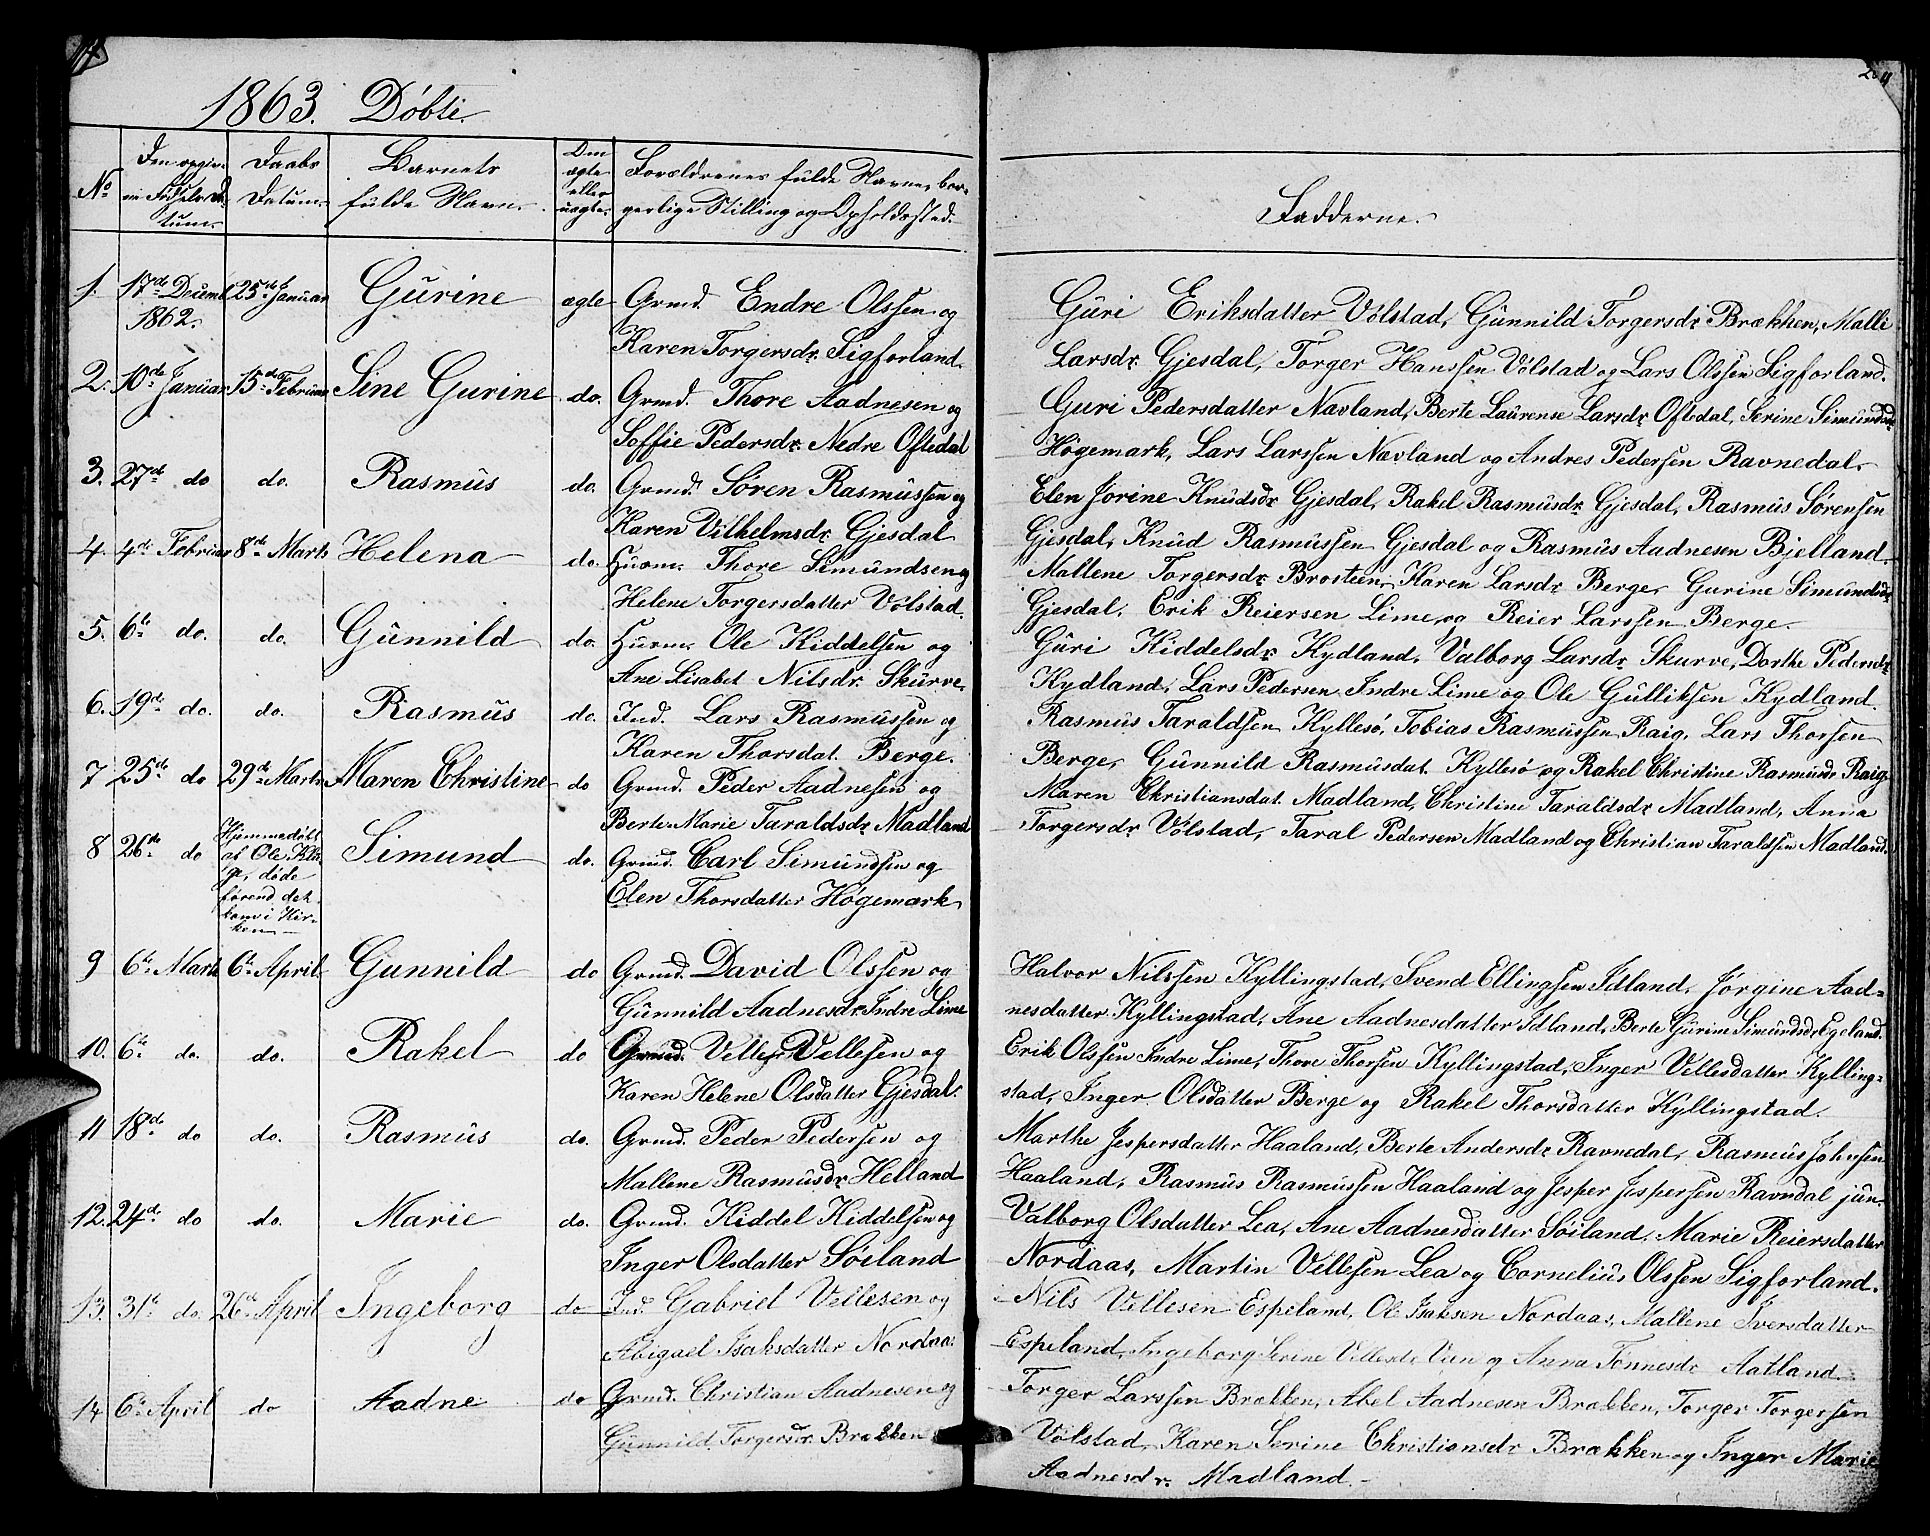 1863. Döbte.
No
Den opgiv-
ne Födsels Da-
tum.
Daabs
Datum.
Barnets
fulde Navn.
Om
ægte
eller
uægte.
Forældrenes fulde Navne, bor-
gerlige Stilling og Opholdssted.
Fadderne.
1. 17de Decemb 25de Januar Gurine ægte Grmd. Endre Olssen og
1862. Karen Torgersdr. Sigforland.
Guri Eriksdatter Völstad, Gunnild Torgersdr Brækken, Malli
Larsdr. Gjesdal, Torger Hanssen Völstad og Lars Olssen Sigforland.
2. 10de Januar 15de Februar Sine Gurine do. Grmd. Thore Aadnesen og
Soffie Pedersdr. Nedre Oftedal
Guri Pedersdatter Nævland, Berte Laurense Larsdr Oftedal, Serine Simundsdr
Högemark, Lars Larssen Nævland og Andres Pedersen Ravnedal.
3. 27de do do. Rasmus do. Grmd. Sören Rasmussen og
Karen Vilhelmsdr Gjesdal
Elen Jorine Knudsdr Gjesdal, Rakel Rasmusdr Gjesdal, Rasmus Sörensen
Gjesdal, Knud Rasmussen Gjesdal og Rasmus Aadnesen Bjelland.
4. 4de Februar 8de Marts Helena do. Huum. Thore Simundsen og
Helene Torgersdatter Völstad.
Mallene Torgersdr Brosteen, Karen Larsdr Berge, Gurine Simundsdr
Gjesdal, Erik Reiersen Lime og Reier Larssen Berge.
5. 6te do. do. Gunnild do. Huum. Ole Kiddelsen og
Ane Lisabet Nilsdr. Skurve.
Guri Kiddelsdr Kydland, Valborg Larsdr Skurve, Dorthe Pedersdr
Kydland, Lars Pedersen Indre Lime og Ole Gulliksen Kydland.
6. 19de do. do. Rasmus do. Ind. Lars Rasmussen og
Karen Thorsdat. Berge.
Rasmus Taraldsen Kyllesö, Tobias Rasmussen Raig, Lars Thorsen
Berge, Gunnild Rasmusdat. Kyllesö og Rakel Christine Rasmusdr Raig.
7 25de do 29de Marts Maren Christine do Grmd. Peder Aadnesen og
Berte Marie Taraldsdr Madland
Maren Christiansdat. Madland, Christine Taraldsdr Madland, Anna
Torgersdr Völstad, Taral Pedersen Madland og Christian Taraldsen Madland.
8 26de do Hjemmedöbt Simund do. Grmd. Carl Simundsen og
af Ole
döde
förend det
kom i Kir-
ken
Elen Thorsdatter Högemark
9 6te Marts 6te April Gunnild do Grmd. David Olssen og
Gunnild Aadnesdr. Indre Lime
Halvor Nilssen Kyllingstad, Svend Ellingsen Idland, Jörgine Aad-
nesdatter Kyllingstad, Ane Aadnesdatter Idland, Berte Gurine Simundsdr Egeland.
10. 6te do. do. Rakel do Grmd. Velles Vellesen og
Karen Helene Olsdatter Gjesdal.
Erik Olssen Indre Lime, Thore Thorsen Kyllingstad, Inger Vellesdatter Kylling-
stad, Inger Olsdatter Berge og Rakel Thorsdatter Kyllingstad.
11 18de do do. Rasmus do. Grmd. Peder Pedersen og
Mallene Rasmusdr Helland
Marthe Jespersdatter Haaland, Berte Andersdr Ravnedal, Rasmus Johnsen
Haaland, Rasmus Rasmussen Haaland og Jesper Jespersen Ravndal jun.
12. 24de do do. Marie do. Grmd. Kiddel Kiddelsen og
Inger Olsdatter Söiland
Valborg Olsdatter Lea, Ane Aadnesdatter Söiland, Marie Reiersdatter
Nordaas, Martin Vellesen Lea og Cornelius Olssen Sigforland.
13. 31te do. 26de April Ingeborg do Ind. Gabriel Vellesen og
Abigael Isaksdatter Nordaas
Nils Vellesen Espeland, Ole Isaksen Nordaas, Mallene Iversdatter
Espeland, Ingeborg Serine Vellesdr Vien og Anna Tönnesdr Aatland.
14 6te April do Aadne do Grmd. Christian Aadnesen og
Gunnild Torgersdr. Brækken
Torger Larssen Brækken, Abel Aadnesen Brækken, Torger Torgersen
Völstad, Karen Serine Christiansdr Brækken og Inger Marie
Aadnesdr. Madland.